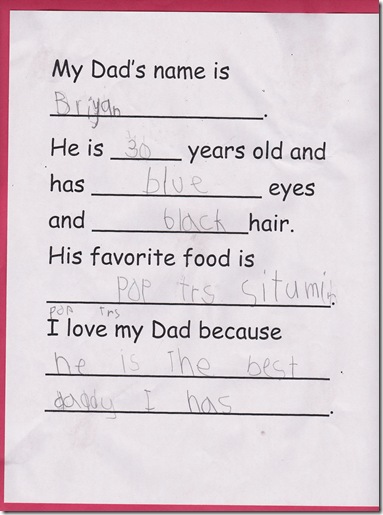 My Dad's name is
Briyan.
He is 30 years old and
has blue eyes
and black hair.
His favorite food is
pop trs situmin.
pop trs
I love my Dad because
he is The best
daddy I has.